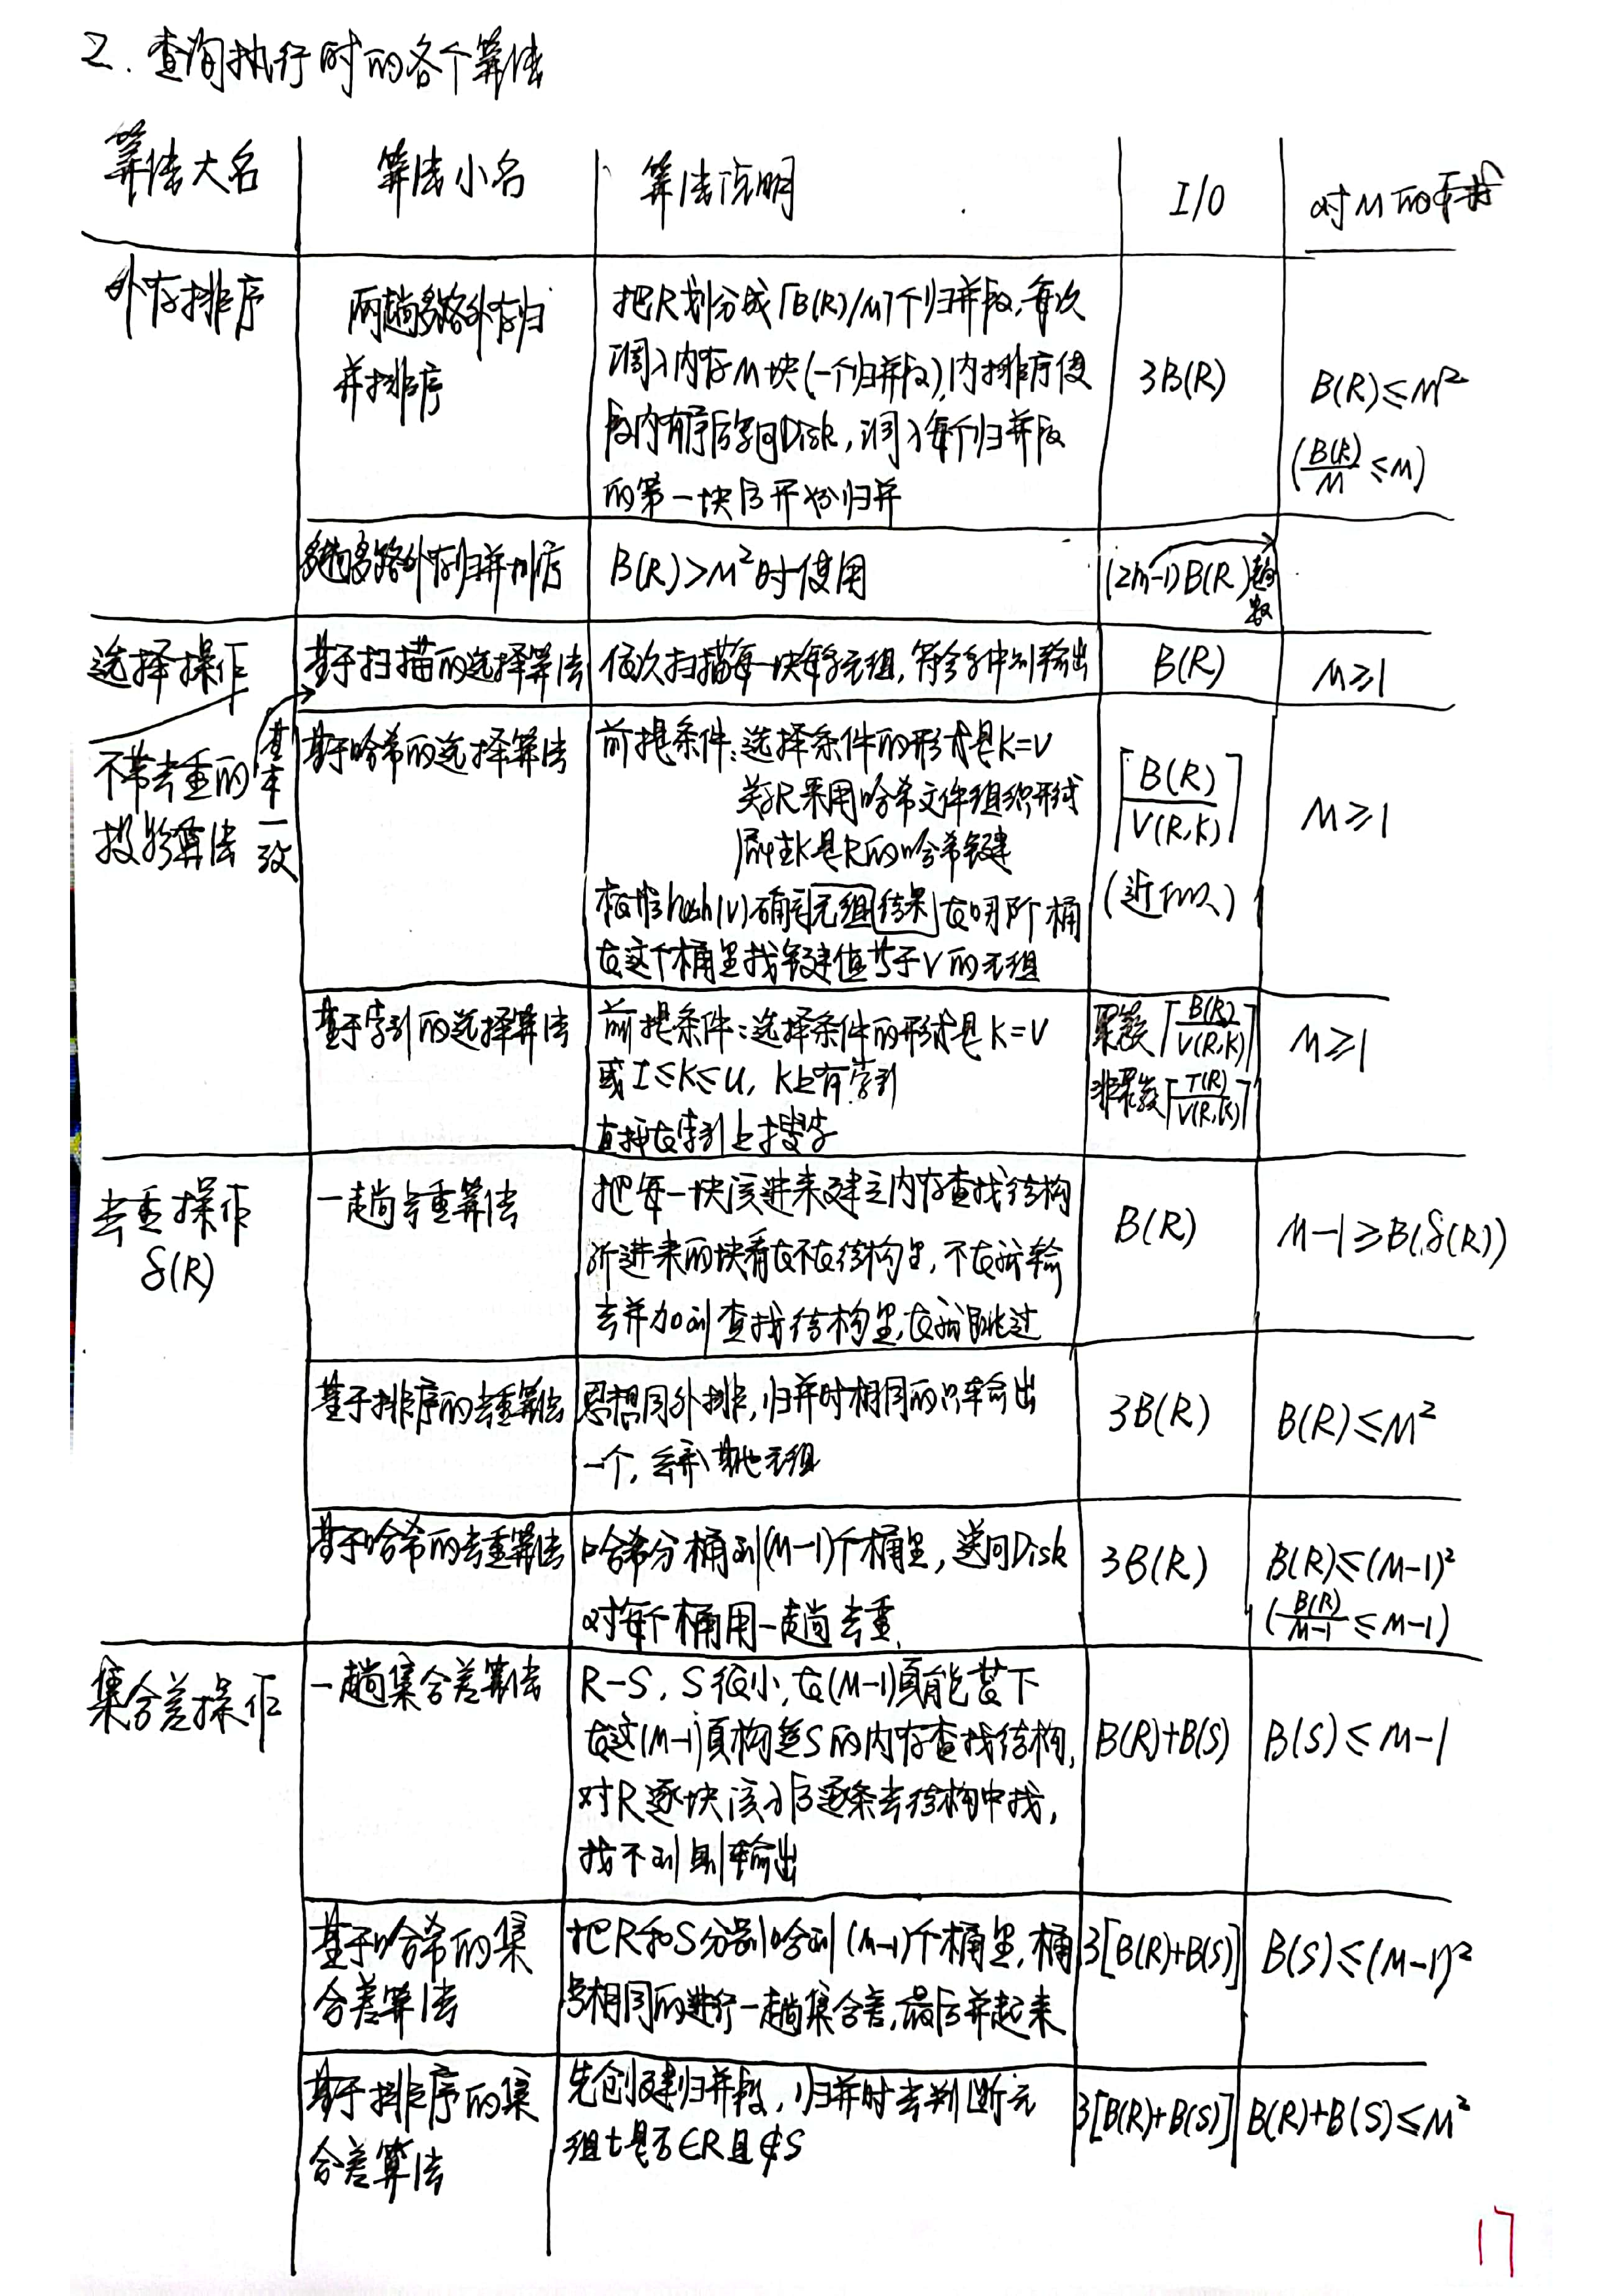 2. 查询执行时的各个算法
算法大名
算法小名
算法说明
I/O
对M的要求
外存排序
两趟多路外存归
并排序
把R划分成⌈B(R)/M⌉个归并段,每次
调入内存M块(一个归并段),内排序使
段内有序后写回Disk,调入每个归并段
的第一块后开始归并
3B(R)
B(R)≤M²
(B(R)/M ≤M)
多趟多路外存归并排序
B(R)>M²时使用
(2m-1)B(R)
趟数
选择操作
基于扫描的选择算法
依次扫描每一块每个元组,符合条件则输出
B(R)
M≥1
不带去重的
投影算法
基本一致
基于哈希的选择算法
前提条件:选择条件的形式是K=V
关系R采用哈希文件组织形式
属性K是R的哈希键
根据hash(V)确定元组结果在哪个桶
在这个桶里找键值等于V的元组
⌈B(R)/V(R,K)⌉
(近似)
M≥1
基于索引的选择算法
前提条件:选择条件的形式是K=V
或I≤K≤U, K上有索引
直接在索引上搜索
聚簇⌈B(R)/V(R,K)⌉
非聚簇⌈T(R)/V(R,K)⌉
M≥1
去重操作
δ(R)
一趟去重算法
把每一块读进来建立内存查找结构
新进来的块看在不在结构里,不在就输
出并加到查找结构里,在就跳过
B(R)
M-1≥B(δ(R))
基于排序的去重算法
思想同外排,归并时相同的只输出
一个,去掉其他元组
3B(R)
B(R)≤M²
基于哈希的去重算法
哈希分桶到(M-1)个桶里,送回Disk
对每个桶用一趟去重.
3B(R)
B(R)≤(M-1)²
(B(R)/M-1 ≤M-1)
集合差操作
一趟集合差算法
R-S, S很小,在(M-1)页能装下
在这(M-1)页构造S的内存查找结构,
对R逐块读入后逐条去结构中找,
找不到则输出
B(R)+B(S)
B(S)≤M-1
基于哈希的集
合差算法
把R和S分别哈到(M-1)个桶里,桶
号相同的进行一趟集合差,最后并起来
3[B(R)+B(S)]
B(S)≤(M-1)²
基于排序的集
合差算法
先创建归并段,归并时去判断元
组t是否∈R且∉S
3[B(R)+B(S)]
B(R)+B(S)≤M²
17